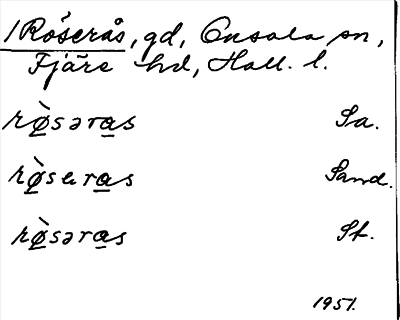 1 Röserås, gd, Onsala sn,
Fjäre hd, Hall. l.
rø̀səras Sa.
rø̀seras Sand.
rø̀səras St.
1951.